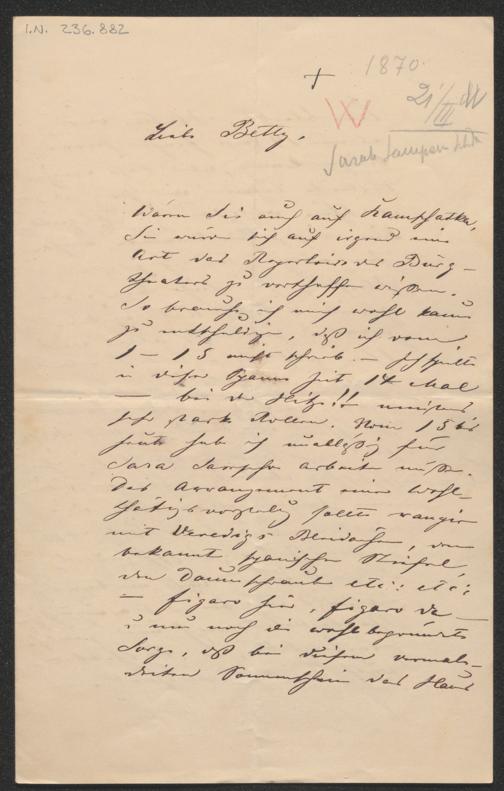 I.N. 236.882
1870
21/III
W
Sarah Sampson
Liebe Betty,
Wären Sie auch auf Kamtschatka,
Sie würden sich auf irgend eine
Art das Repertoire des Burg-
theaters zu verschaffen wissen.
So brauch ich mich wohl kaum
zu entschuldigen, daß ich vom
1 – 15 nicht schrieb. – Ich spielte
in dieser Spanne Zeit 14 Mal
– bei der Hitze!! meistens
sehr starke Rollen. Vom 15 bis
heute hab ich unablässig für
Sara Sampson arbeiten müssen.
Das Arrangement einer Wohl-
thätigkeitsvorstellung sollte rangiren
mit Venedigs Bleidächern, dem
bekannten spanischen Stiefel,
den Daumschrauben etc: etc:
– figaro hier, figaro da –
u nun noch die wohlbegründete
Sorge, daß bei diesem vermale-
deiten Sonnenschein das Haus